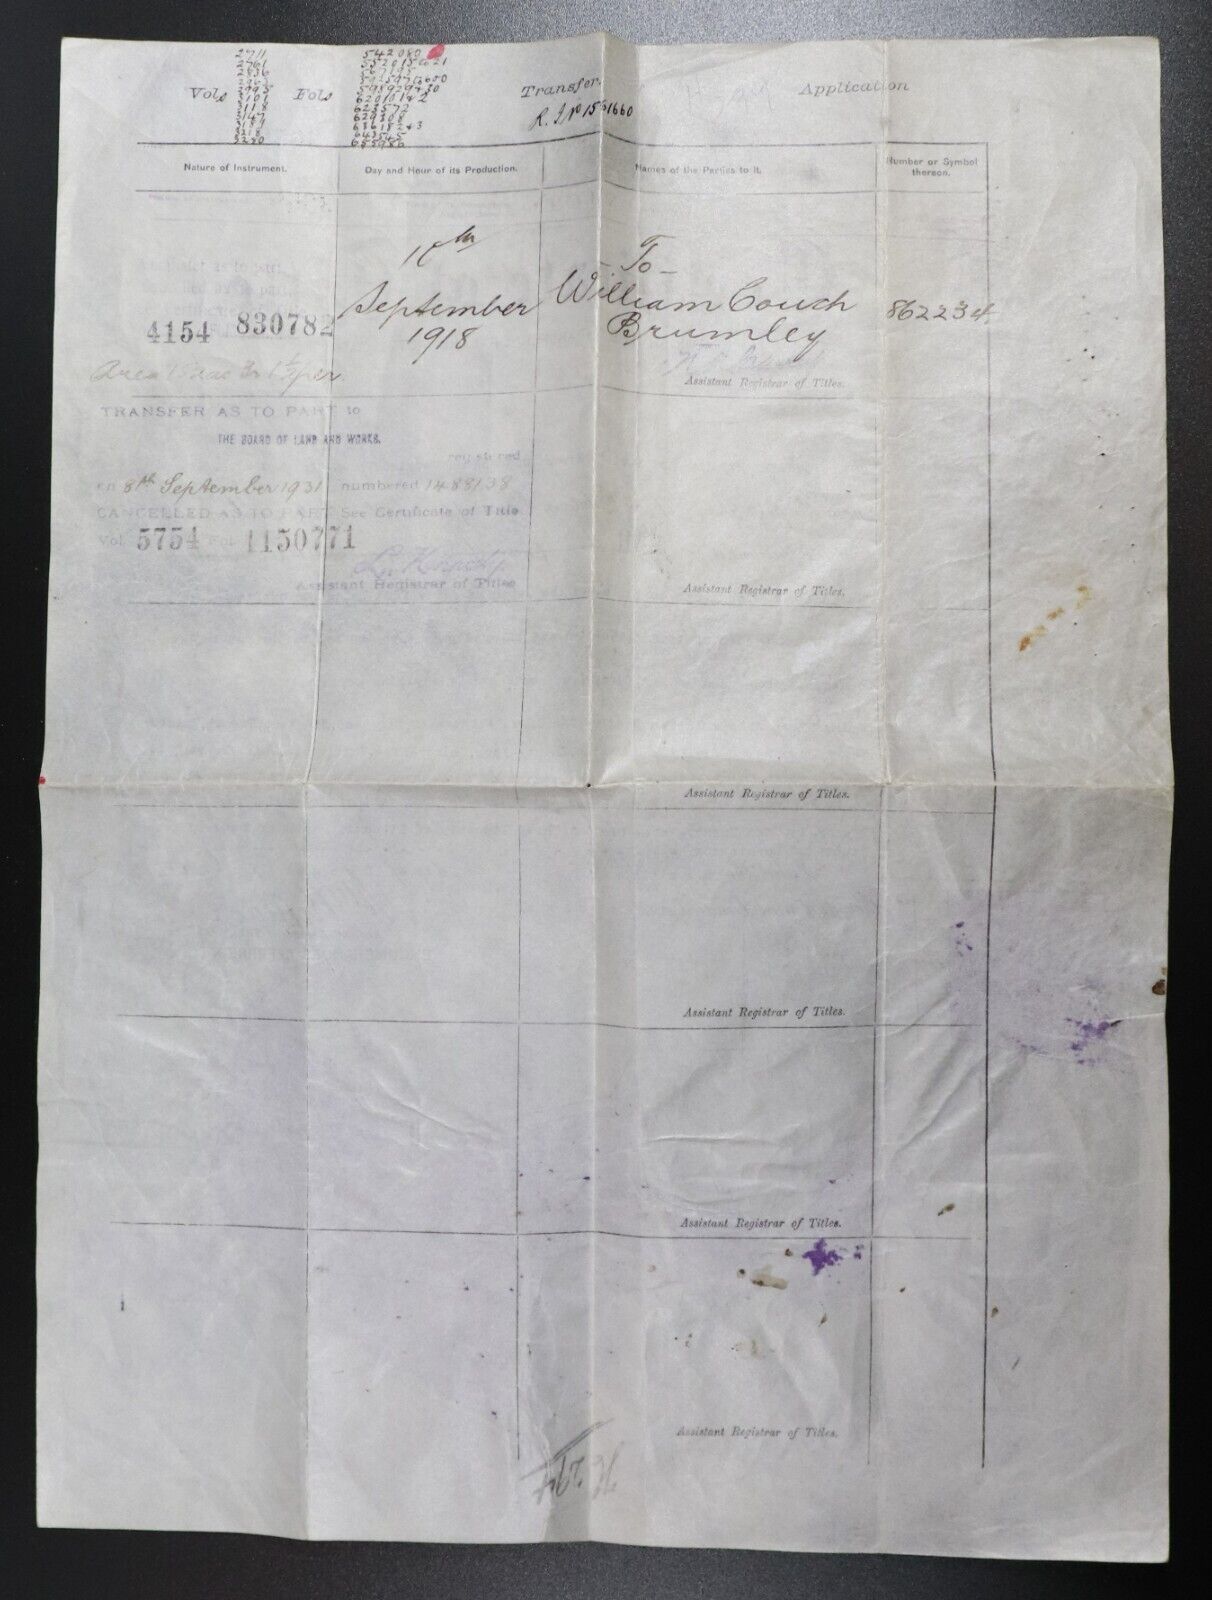 Vols
2711
2761
2836
2963
2995
3101
3118
3147
3189
3218
3250
Fols
542080
552015 to 21
567195
592597 to 600
598929 & 30
620101 & 2
623572
629308
636182 & 3
643545
655986
Transfer
R.J. No 15 1660
Application
Nature of Instrument.
Day and Hour of its Production.
Names of the Parties to it.
Number or Symbol thereon.
as to part
4154 830782
Area
September
1918
- To -
William Couch
Brumley
862234
Assistant Registrar of Titles.
TRANSFER AS TO PART to
THE BOARD OF LAND AND WORKS.
registered
on 8th September 1931 numbered 1488138
CANCELLED AS TO PART See Certificate of Title
Vol. 5754 Fol. 1150771
Assistant Registrar of Titles
Assistant Registrar of Titles.
Assistant Registrar of Titles.
Assistant Registrar of Titles.
Assistant Registrar of Titles.
Assistant Registrar of Titles.